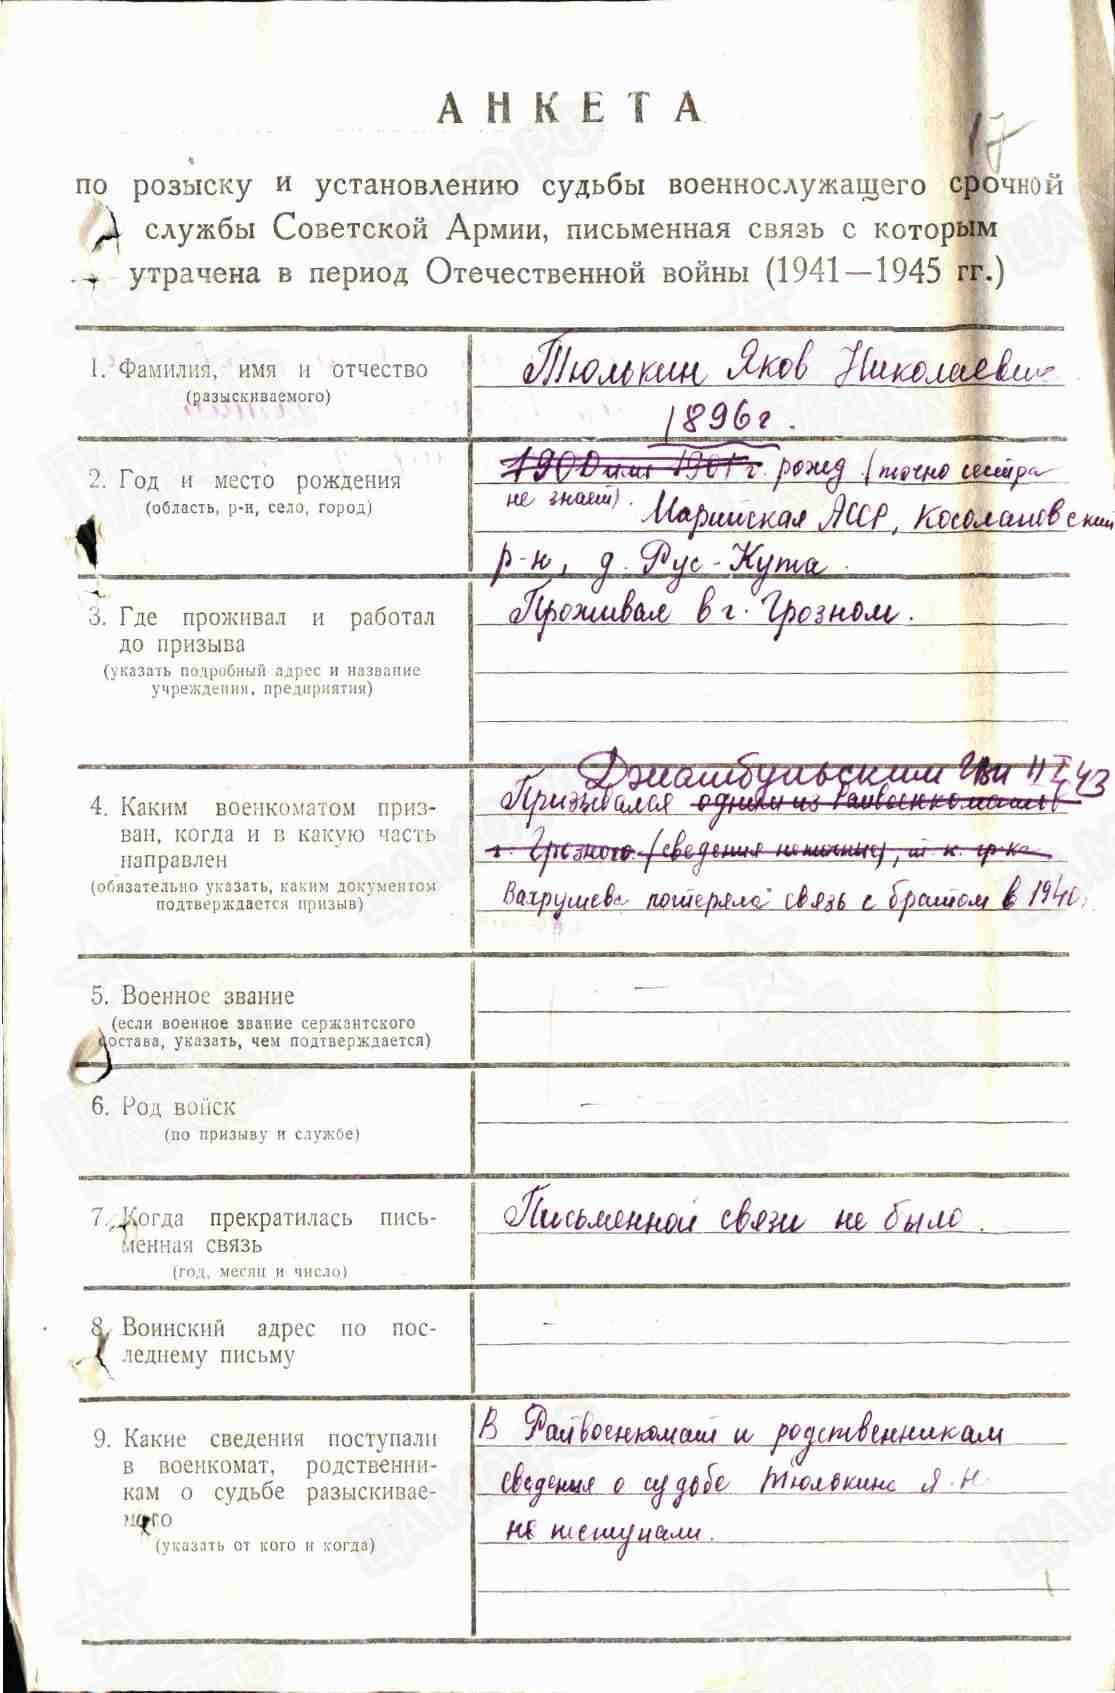 17
АНКЕТА
по розыску и установлению судьбы военнослужащего срочной
службы Советской Армии, письменная связь с которым
утрачена в период Отечественной войны (1941—1945 гг.)
1. Фамилия, имя и отчество
(разыскиваемого)
Тюлькин Яков Николаевич
1896 г.
2. Год и место рождения
(область, р-н, село, город)
1900 или 1901 г. рожд. (точно сестра
не знает). Марийская АССР, Косолаповский
р-н, д. Рус-Кута.
3. Где проживал и работал
до призыва
(указать подробный адрес и название
учреждения, предприятия)
Проживал в г. Грозном.
4. Каким военкоматом приз-
ван, когда и в какую часть
направлен
(обязательно указать, каким документом
подтверждается призыв)
Джамбульским
Призывался одним из Райвоенкоматов
г. Грозного. (сведения неточные), т. к. гр-ка
Вахрушева потеряла связь с братом в 1940г.
5. Военное звание
(если военное звание сержантского
состава, указать, чем подтверждается)
—
6. Род войск
(по призыву и службе)
—
7. Когда прекратилась пись-
менная связь
(год, месяц и число)
Письменной связи не было.
8. Воинский адрес по пос-
леднему письму
—
9. Какие сведения поступали
в военкомат, родственни-
кам о судьбе разыскивае-
мого
(указать от кого и когда)
В Райвоенкомат и родственникам
сведения о судьбе Тюлькина Я. Н.
не поступали.